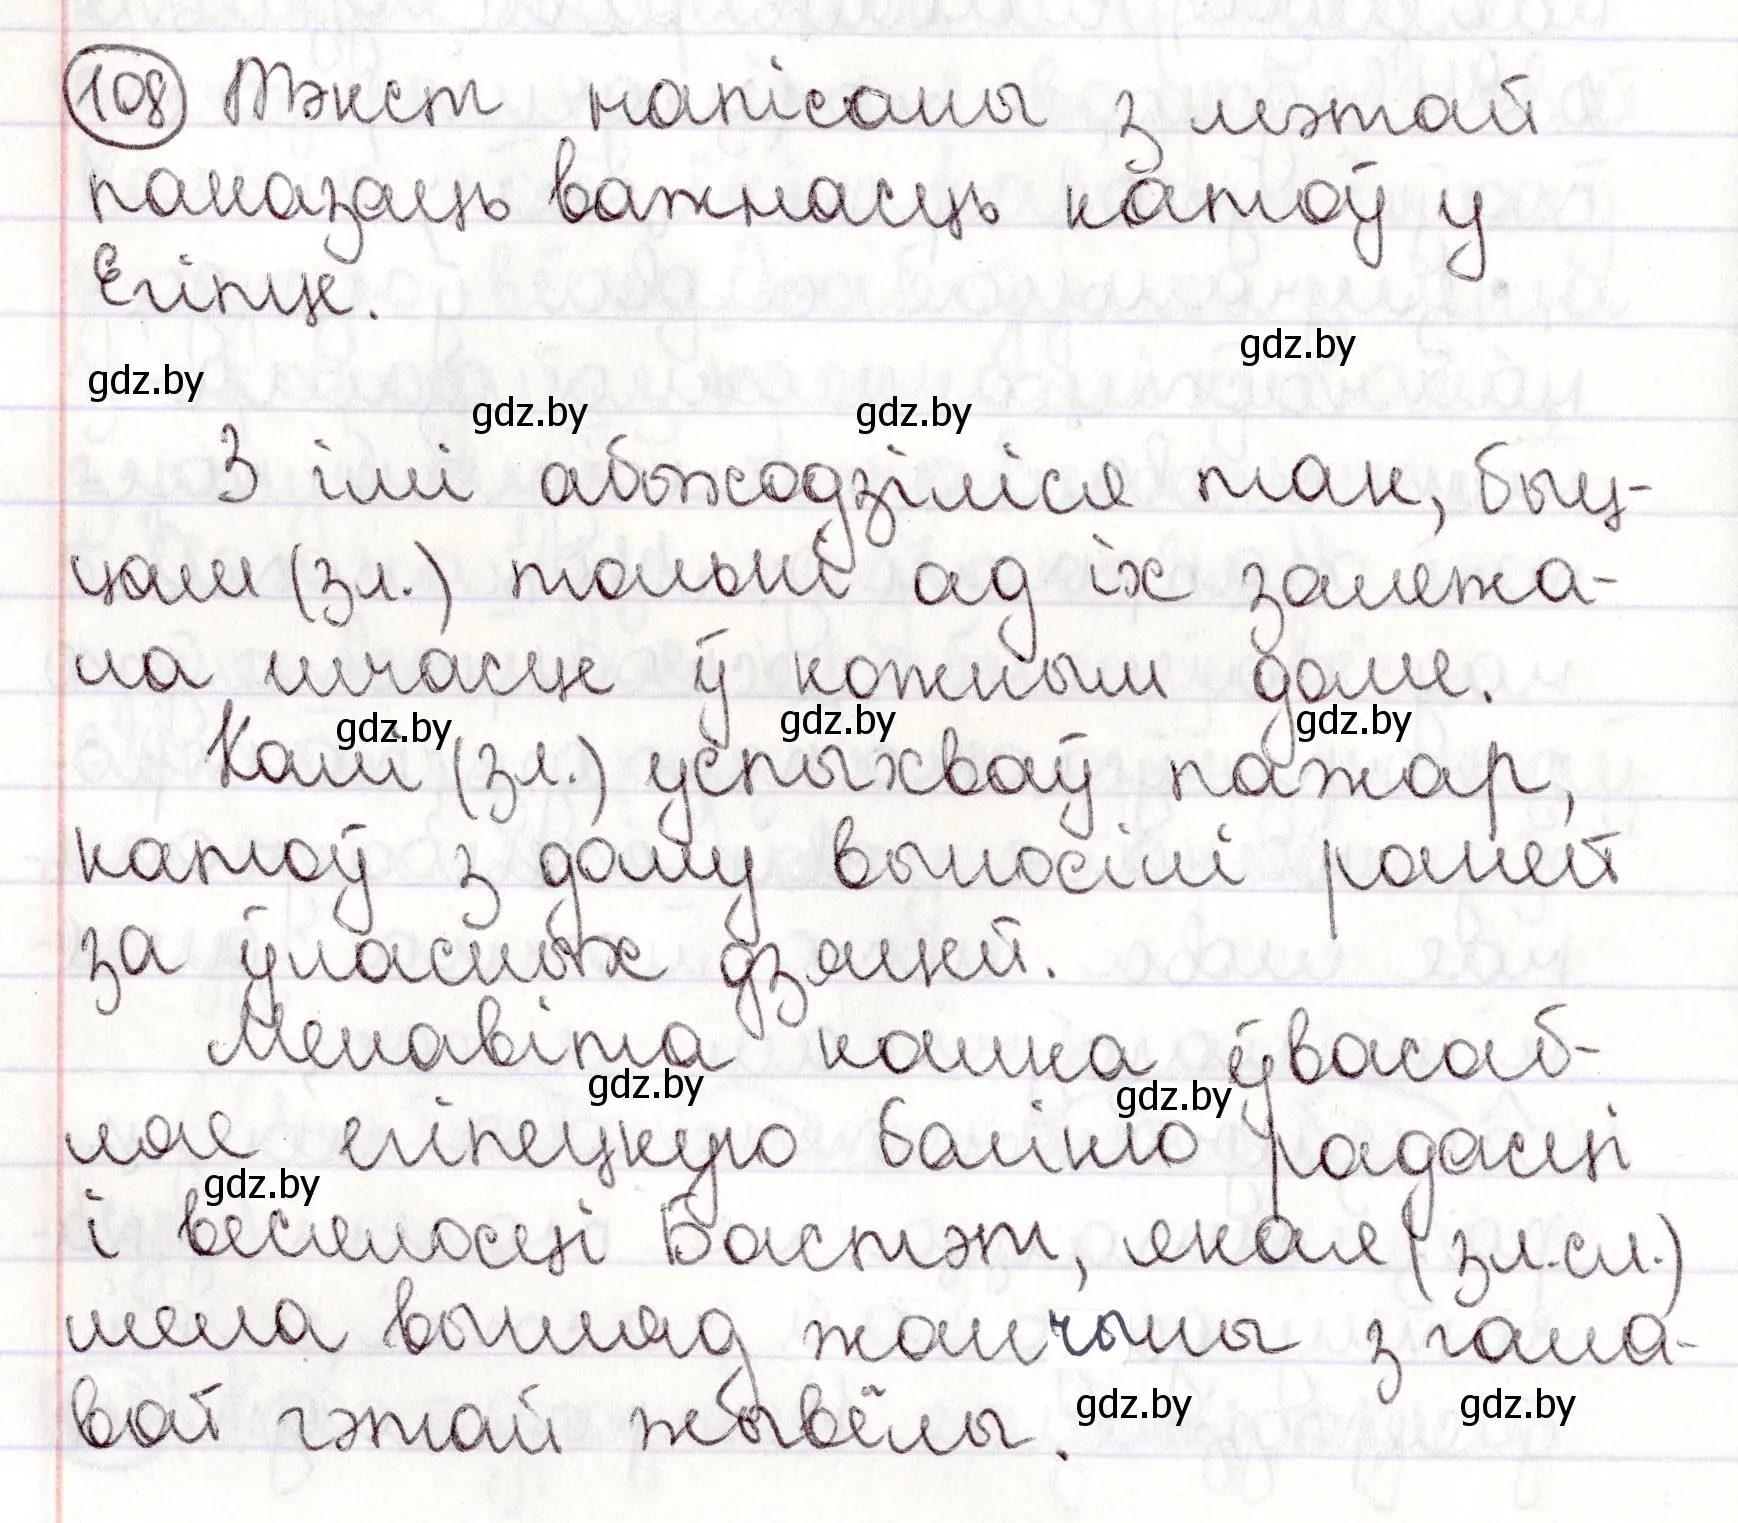 108 Тэкст напісаны з мэтай
паказаць важнасць катоў у
Егіпце.
gdz.by
gdz.by gdz.by gdz.by
З імі абыходзіліся так, быц-
цам (зл.) толькі ад іх залежа-
ла шчасце ў кожным доме.
gdz.by gdz.by gdz.by
Калі (зл.) успыхваў пажар,
катоў з дому выносілі раней
за ўласных дзяцей.
Менавіта кошка ўвасаб-
gdz.by gdz.by
ляе егіпецкую багіню радасці
gdz.by
і весялосці Бастэт, якая (зл.сл.)
мела выгляд жанчыны з гала-
вой гэтай жывёлы.
gdz.by gdz.by